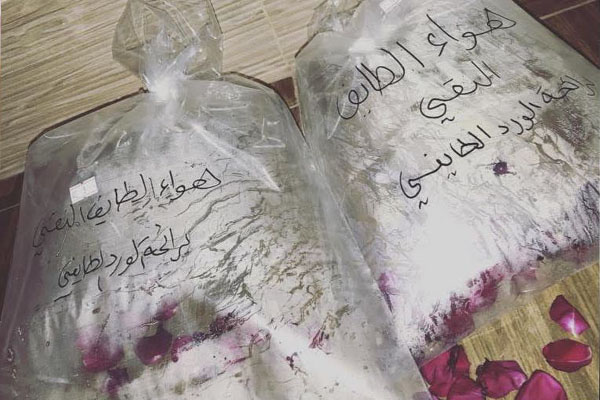 هواء الطايف
النقي
برائحة الورد الطايفي
هواء الطايف النقي
برائحة الورد الطايفي